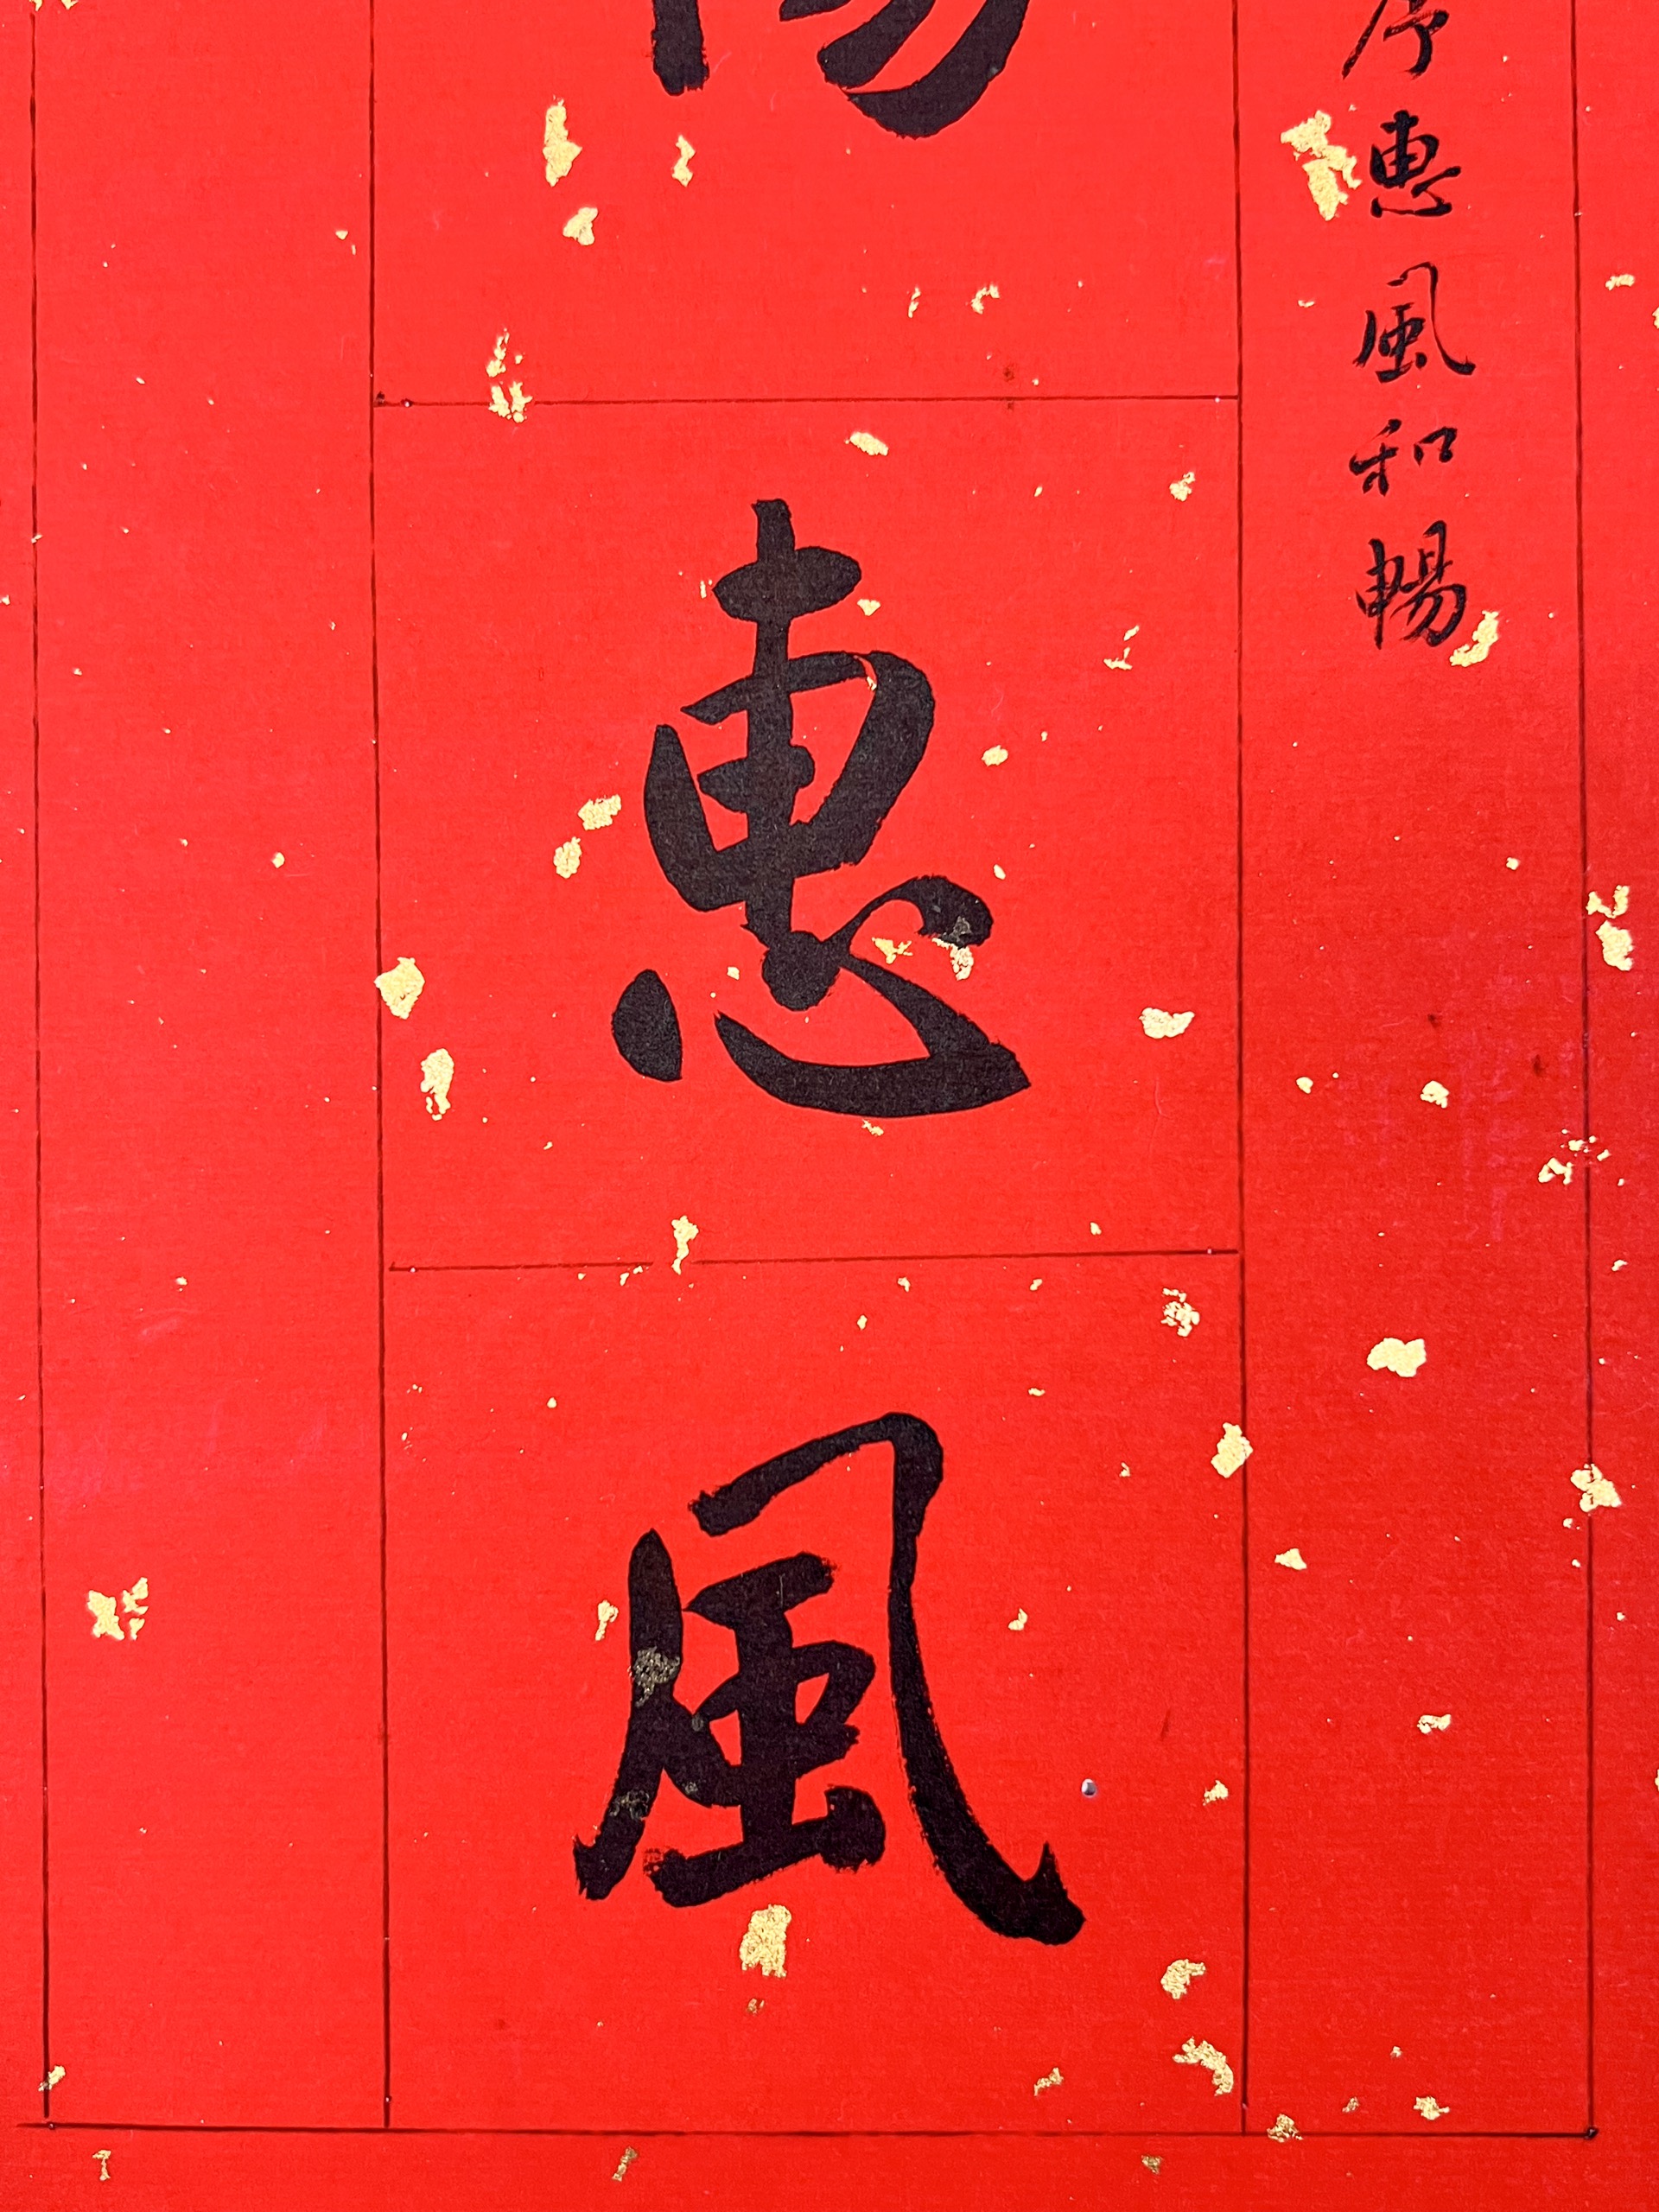 序惠風和暢
惠風